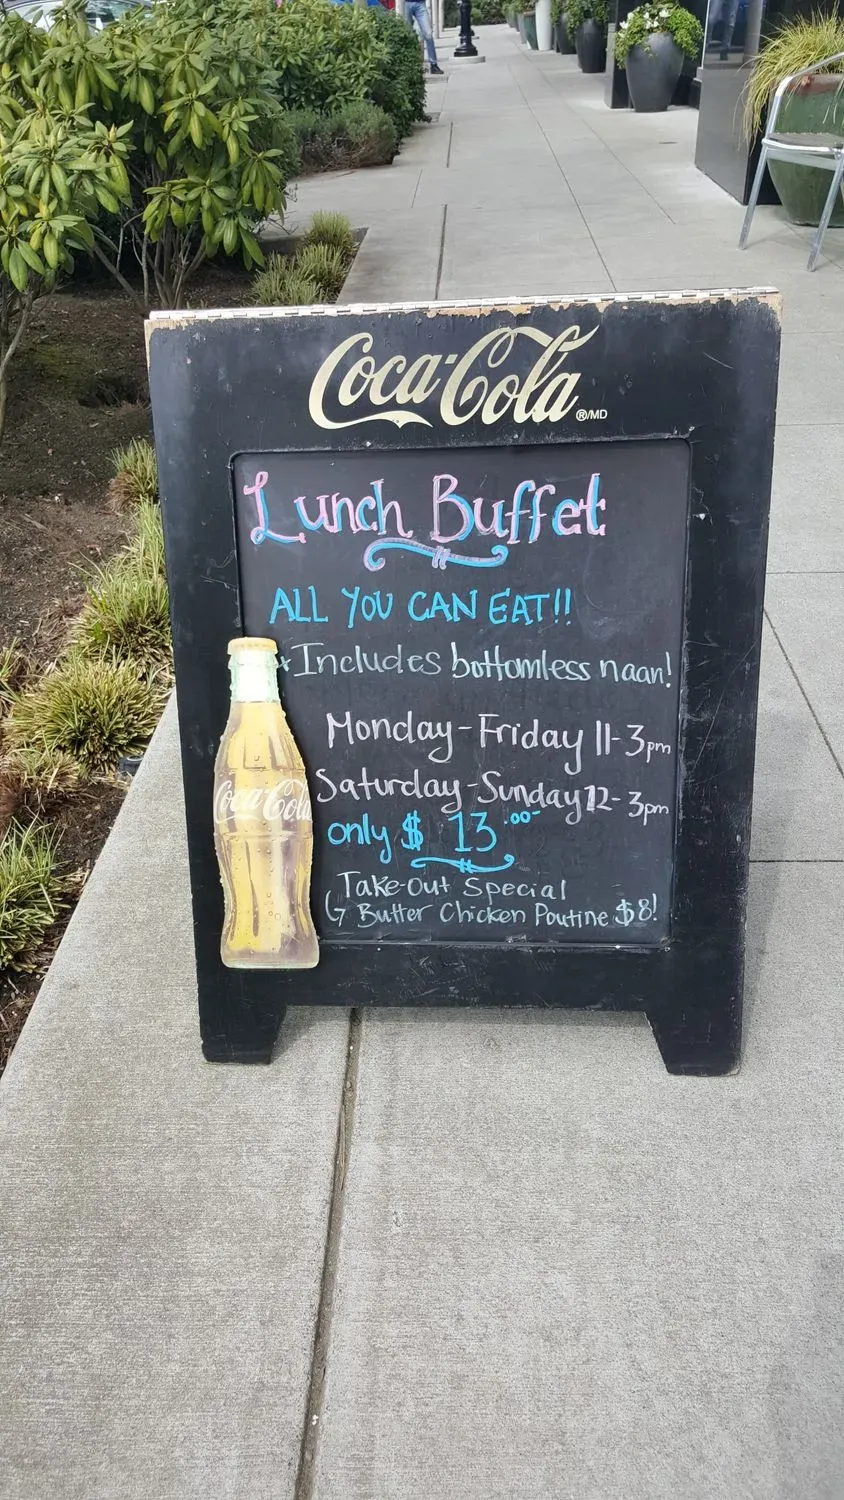 Coca-Cola ®/MD
Lunch Buffet
ALL YOU CAN EAT!!
* Includes bottomless naan!
Monday - Friday 11-3pm
Saturday - Sunday 12-3pm
only $ 13.00
Take-Out Special
↳ Butter Chicken Poutine $8!
Coca-Cola